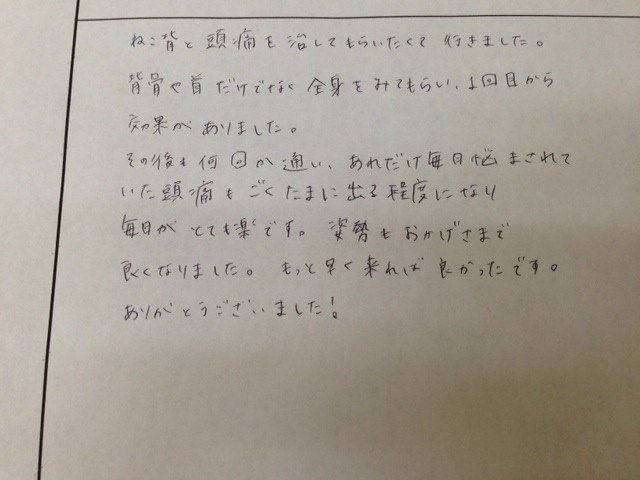 ねこ背と頭痛を治してもらいたくて行きました。
背骨や首だけでなく全身をみてもらい、1回目から
効果がありました。
その後も何回か通い、あれだけ毎日悩まされて
いた頭痛もごくたまに出る程度になり
毎日がとても楽です。姿勢もおかげさまで
良くなりました。もっと早く来れば良かったです。
ありがとうございました!